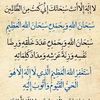 لا إله إلا أنت سبحانك إني كنت من الظالمين
سبحان الله وبحمده سبحان الله العظيم
سبحان الله وبحمده عدد خلقه ورضا
نفسه وزنة عرشه ومداد كلماته
أستغفر الله العظيم الذي لا إله إلا هو
الحي القيوم وأتوب إليه